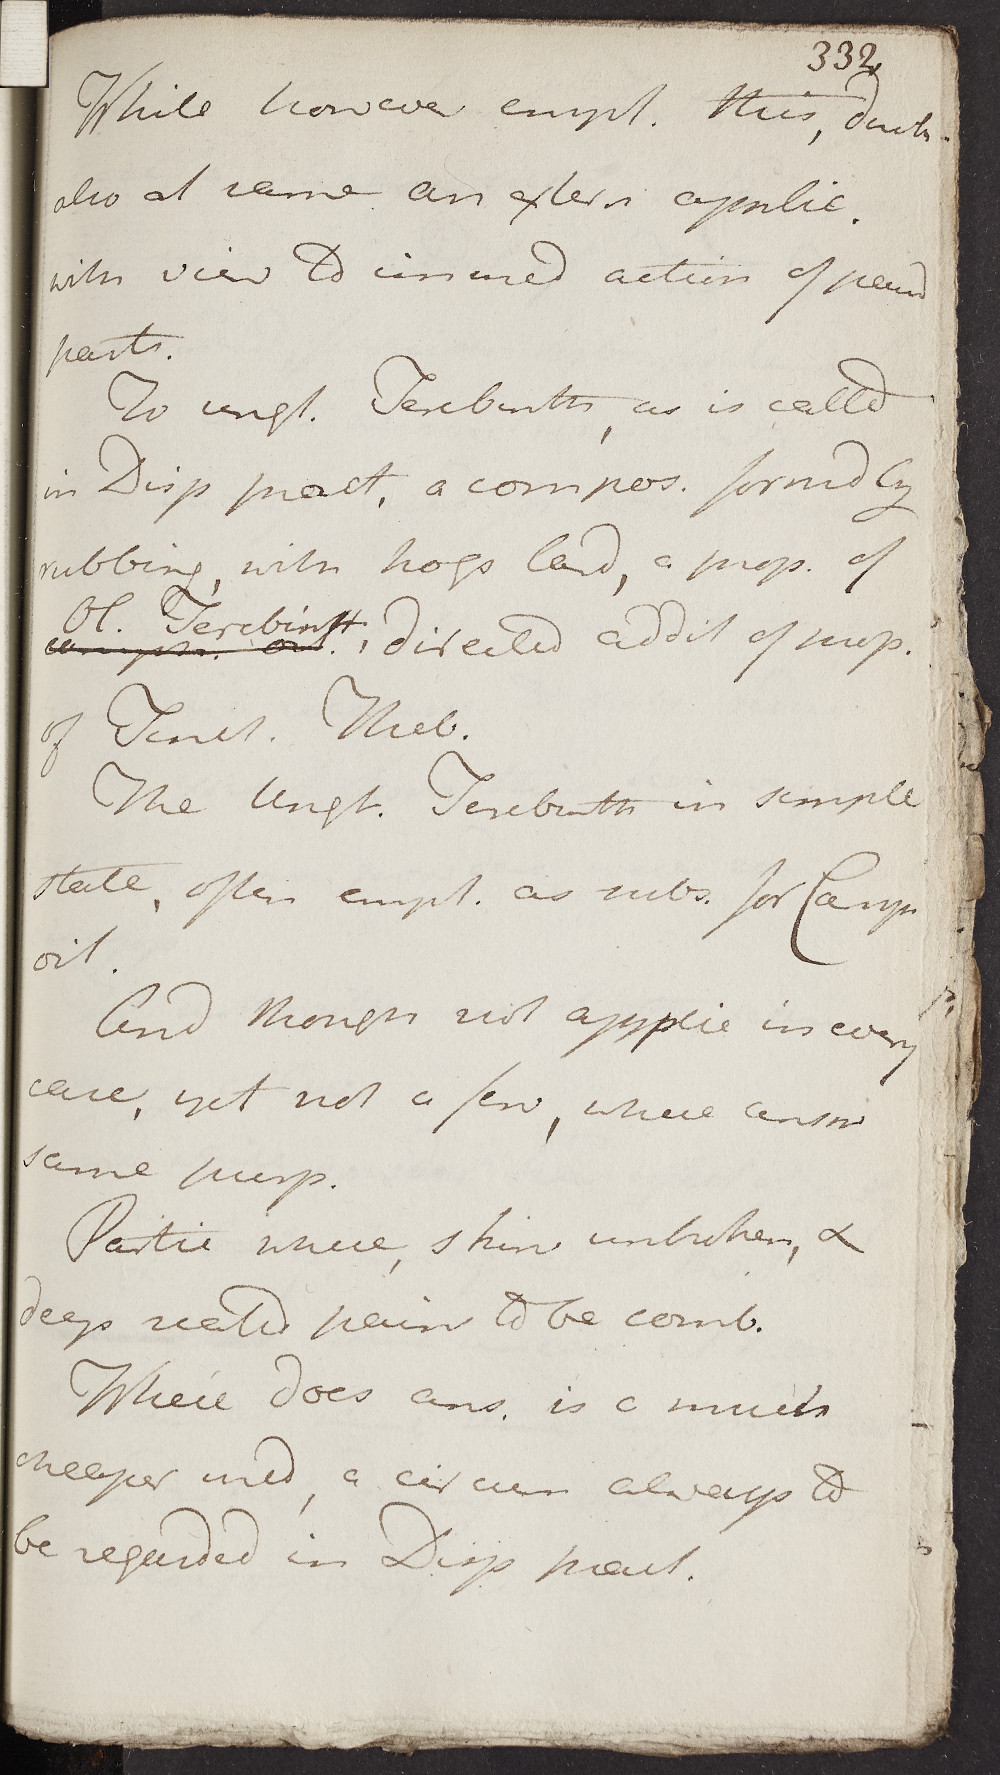 332
While however empl. this, dirctn.
also at same an extern applic.
with view to immed action of paind
parts.
To ungt. Terebinth, as is calld
in Disp pract, a compos. formd by
rubbing, with hogs lard, a prop. of
Ol. Terebinth
camph. oil., directed addit of prop.
of Tinct. Theb.
The Ungt. Terebinth in simple
state, often empl. as subs. for Camp
oil.
And though not applic in every
case, yet not a few, where answ
same purp.
Partic where, skin unbroken, &
deep seated pain to be comb.
Where does ans. is a much
cheaper med, a circum always to
be regarded in Disp pract.